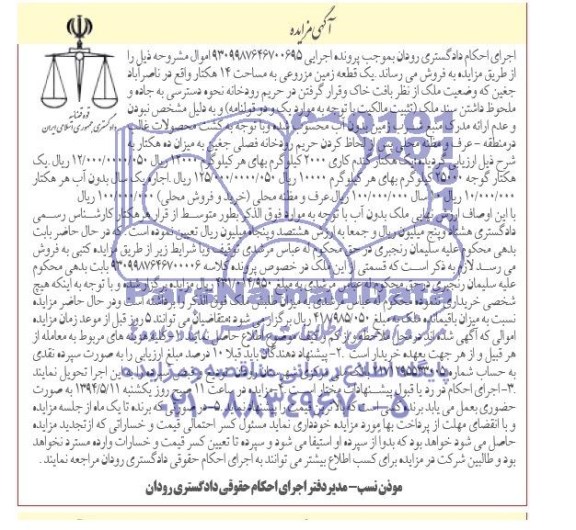 آگهی مزایده
قوه قضائیه
دادگستری جمهوری اسلامی ایران
اجرای احکام دادگستری رودان بموجب پرونده اجرایی ۹۳۰۹۹۸۷۶۴۶۷۰۰۶۹۵ اموال مشروحه ذیل را
از طریق مزایده به فروش می رساند .یک قطعه زمین مزروعی به مساحت ۱۴ هکتار واقع در ناصرآباد
جغین که وضعیت ملک از نظر بافت خاک وقرار گرفتن در حریم رودخانه نحوه دسترسی به جاده و
ملحوظ داشتن سند ملک (تثبیت مالکیت با توجه به موارد یک و دو قولنامه) و به دلیل مشخص نبودن
و عدم ارائه مدرک منبع آب زمین بدون آب محسوب شده وبا توجه به کشت محصولات غالب
درمنطقه – عرف و مظنه محلی پس از لحاظ کردن حریم رودخانه فصلی جغین به میزان ده هکتار به
شرح ذیل ارزیابی گردید یک هکتار گندم کاری ۲۰۰۰ کیلوگرم بهای هر کیلوگرم ۱۲۰۰۰ ریال .یک
هکتار گوجه ۲۵۰۰۰ کیلوگرم بهای هر کیلوگرم ۱۰۰۰۰ ریال اجاره یک سال بدون آب هر هکتار
۱۰/۰۰۰/۰۰۰ ریال سال ۱۰۰/۰۰۰/۰۰۰ ریال عرف و مظنه محلی (خرید و فروش محلی) ریال
با این اوصاف ارزش نهایی ملک بدون آب با توجه به موارد فوق الذکر بطور متوسط از قرار هر هکتار کارشناس رسمی
دادگستری هشتاد و پنج میلیون ریال و جمعا به ارزش هشتصد وپنجاه میلیون ریال تعیین نموده است که در حال حاضر بابت
بدهی محکوم علیه سلیمان رنجبری در حق محکوم له عباس مرشدی توقیف وبا شرایط زیر از طریق مزایده کتبی به فروش
می رسد لازم به ذکر است که قسمتی از این ملک در خصوص پرونده کلاسه ۹۳۰۹۹۸۷۶۴۶۷۰۰۰۰۶ بابت بدهی محکوم
علیه سلیمان رنجبری در حق محکوم له عباس مرشدی به مبلغ ریال مزایده برگزار شد و با توجه به اینکه هیچ
شخصی خریداری ننموده محکوم له عباس مرشدی به میزان طلبش ملک فوق الذکر را برداشته است ودر حال حاضر مزایده
نسبت به میزان باقیمانده ملک به مبلغ ۴۱۷۹۸۵۰۵۰ ریال برگزار می شود متقاضیان می توانند ۵ روز قبل از موعد زمان مزایده
اموالی که آگهی شده اند در محل ملاحظه و از کم و کیف موضوع اطلاع حاصل نمایند ۱– کلیه هزینه های مربوطه به معامله از
هر قبیل و از هر جهت بعهده خریدار است .۲– پیشنهاد دهندگان باید قبلا ۱۰ درصد مبلغ ارزیابی را به صورت سپرده نقدی
به حساب شماره این اجرا تحویل نمایند
.۳–اجرای احکام در رد یا قبول پیشنهادات مختار است .۴–مزایده در ساعت ۱۱ صبح روز یکشنبه ۱۳۹۴/۵/۱۱ به صورت
حضوری بعمل می یابد برنده برنده تا یک ماه از جلسه مزایده
و با انقضای مهلت از پرداخت بها مورد مزایده خودداری نماید مسئول کسر احتمالی قیمت و خساراتی که ازتجدید مزایده
حاصل می شود خواهد بود که بدوا از سپرده او استیفا می شود و سپرده تا تعیین کسر قیمت و خسارات وارده مسترد نخواهد
بود و طالبین شرکت در مزایده برای کسب اطلاع بیشتر می توانند به اجرای احکام حقوقی دادگستری رودان مراجعه نمایند .
موذن نسب– مدیر دفتر اجرای احکام حقوقی دادگستری رودان
ParsNamadData
پایگاه اطلاع رسانی مناقصه و مزایده
۰۲۱-۸۸۳۴۹۶۷۰-۵